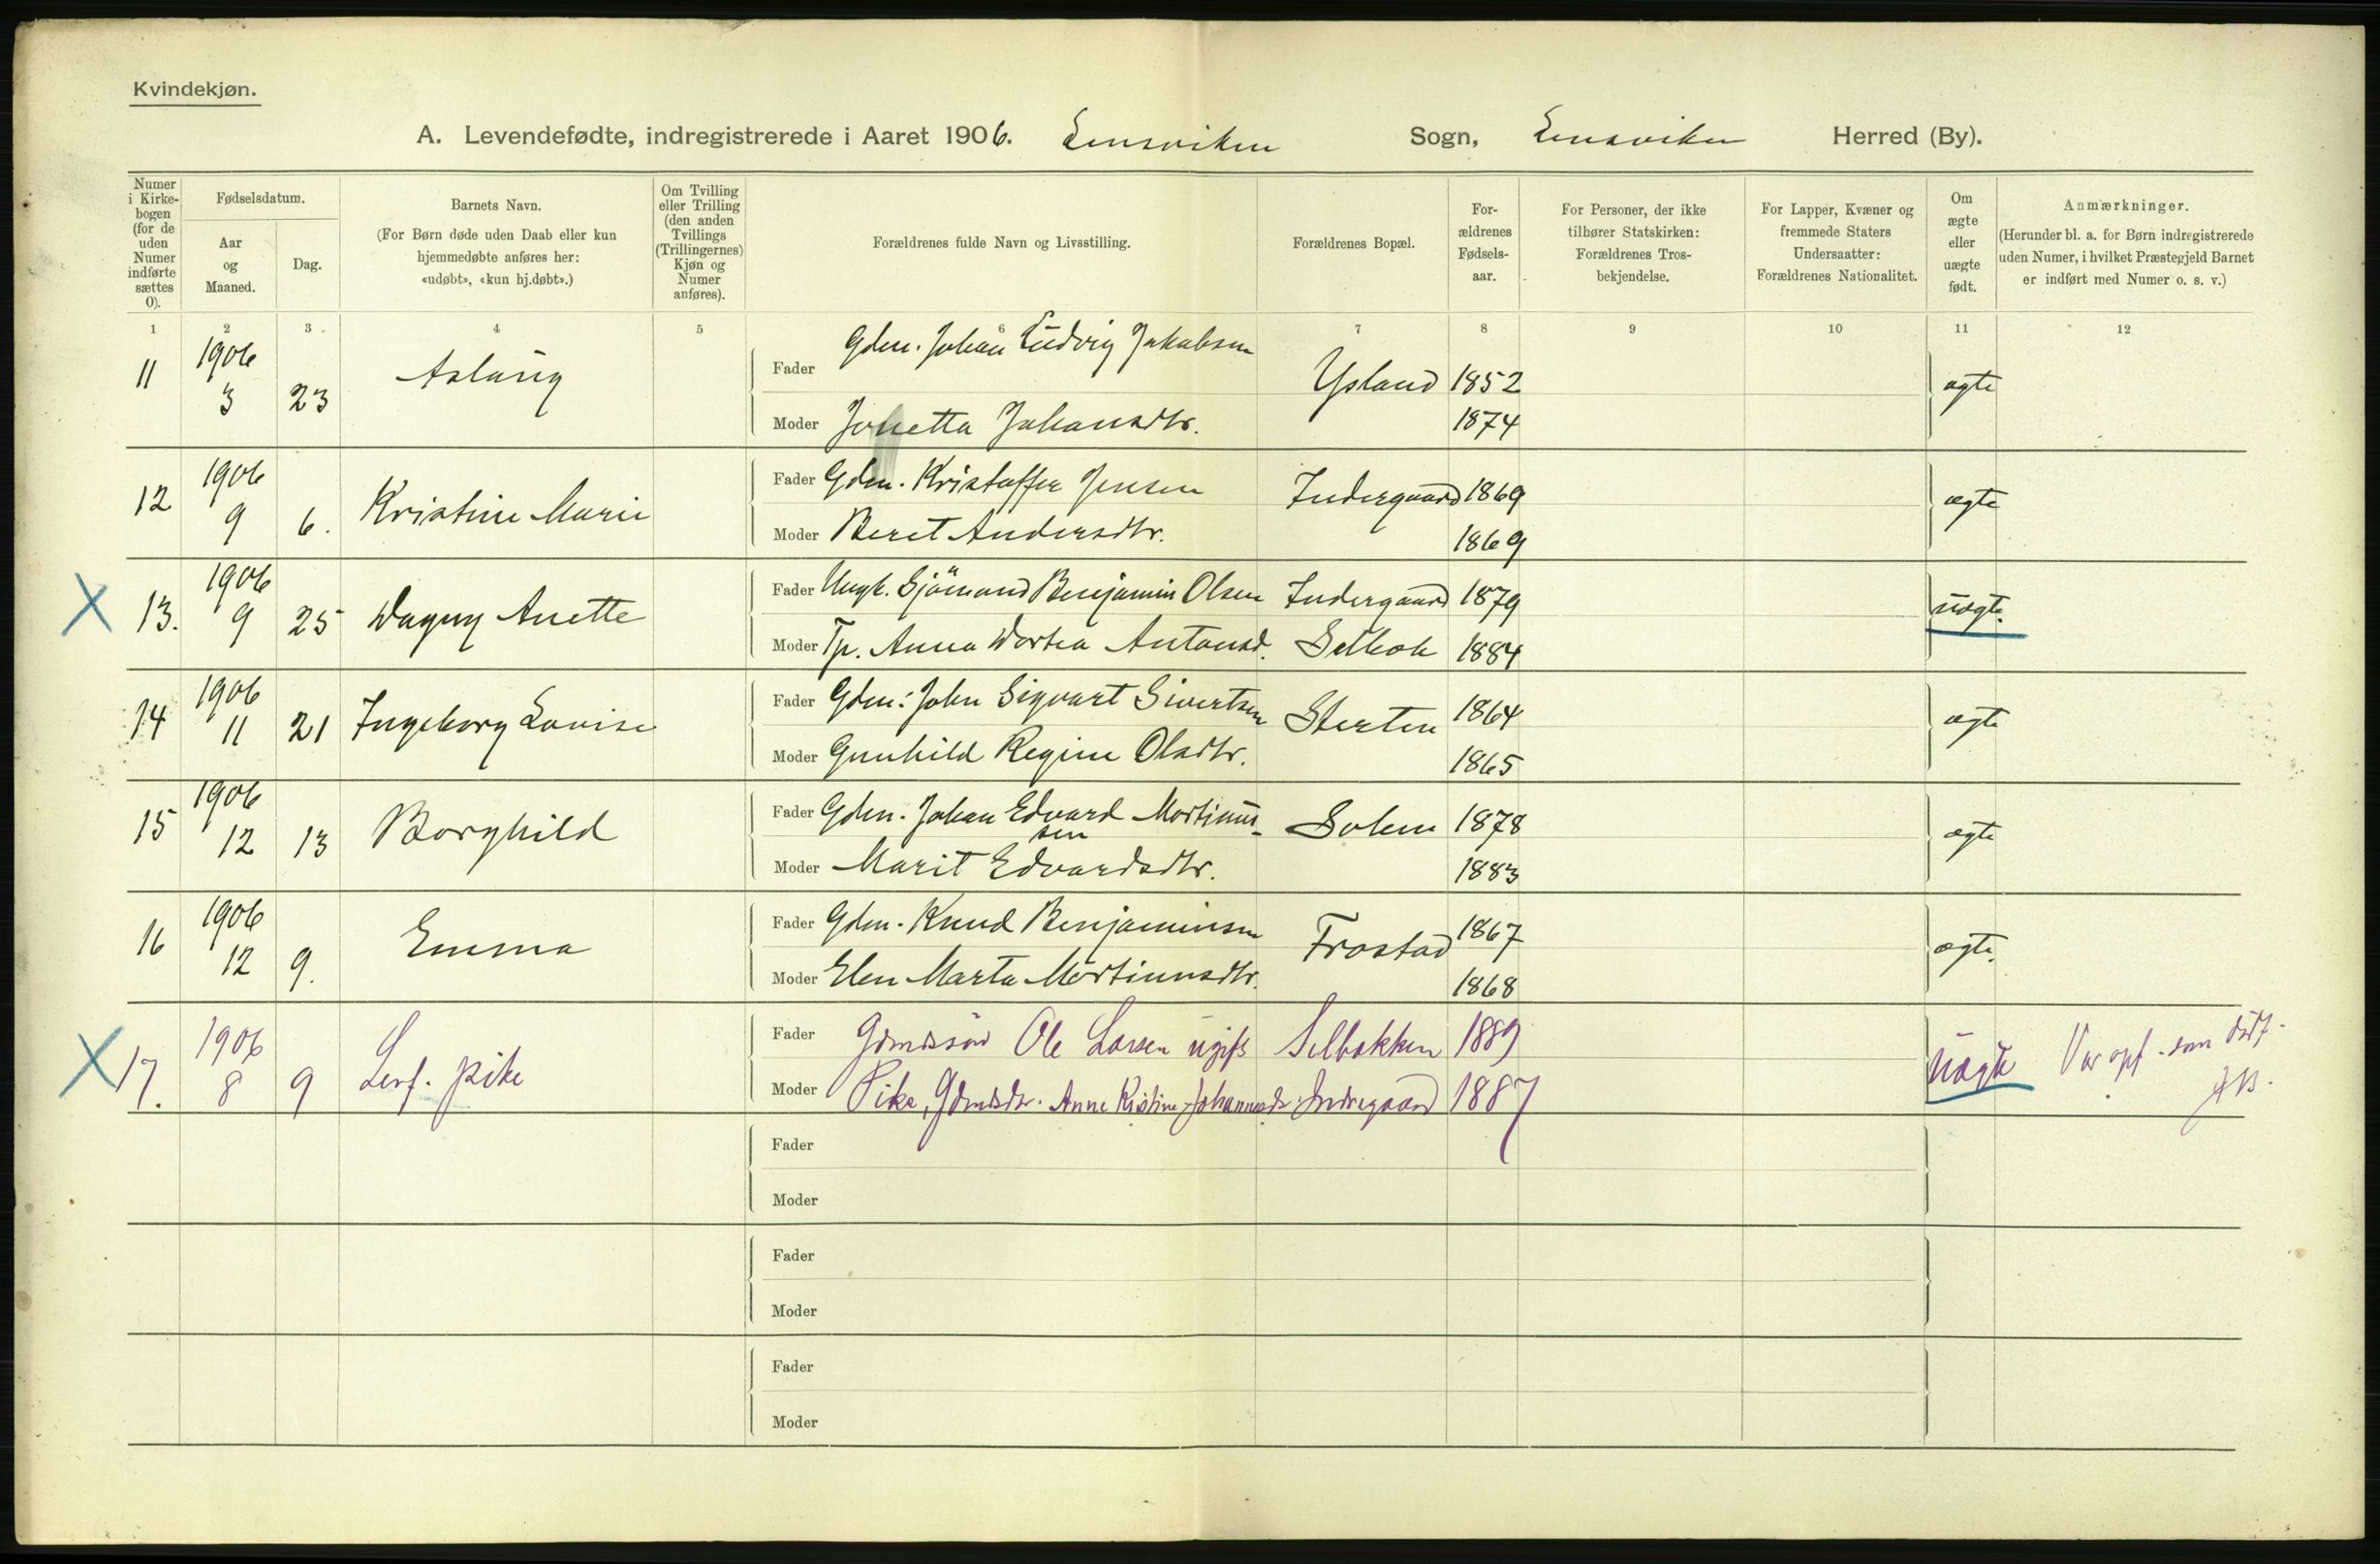 Kvindekjøn.
A. Levendefødte, indregistrerede i Aaret 1906. Lensviken Sogn, Lensviken Herred (By).
Numer i Kirkebogen (for de uden Numer indførte sættes 0).
Fødselsdatum.
Aar og Maaned.
Dag.
Barnets Navn.
(For Børn døde uden Daab eller kun hjemmedøbte anføres her: «udøbt», «kun hj.døbt».)
Om Tvilling eller Trilling (den anden Tvillings (Trillingernes) Kjøn og Numer anføres).
Forældrenes fulde Navn og Livsstilling.
Forældrenes Bopæl.
Forældrenes Fødselsaar.
For Personer, der ikke tilhører Statskirken: Forældrenes Trosbekjendelse.
For Lapper, Kvæner og fremmede Staters Undersaatter: Forældrenes Nationalitet.
Om ægte eller uægte født.
Anmærkninger.
(Herunder bl. a. for Børn indregistrerede uden Numer, i hvilket Præstegjeld Barnet er indført med Numer o. s. v.)
1 2 3 4 5 6 7 8 9 10 11 12
11 1906 3 23 Aslaug
Fader Gdm. Johan Ludvig Jakobsen Ysland 1852 ægte
Moder Jonetta Johansdtr. 1874
12 1906 9 6. Kristine Marie
Fader Gdm. Kristoffer Jensen Indergaard 1869 ægte
Moder Beret Andersdtr. 1869
X 13. 1906 9 25 Dagny Anette
Fader Ungk. Sjömand Benjamin Olsen Indergaard 1879 uægte.
Moder Tp. Anna Dortea Antonsd. Selbek 1884
14 1906 11 21 Ingeborg Lovise
Fader Gdm. John Sigvart Sivertsen Sterten 1864 ægte
Moder Gunhild Regine Olsdtr. 1865
15 1906 12 13 Borghild
Fader Gdm. Johan Edvard Mortinussen Solem 1878 ægte
Moder Marit Edvardsdtr. 1883
16 1906 12 9. Emma
Fader Gdm. Knud Benjaminsen Frostad 1867 ægte.
Moder Elen Marta Mortinusdtr. 1868
X 17. 1906 8 9 Levf. pike
Fader Gdmdssøn Ole Larsen ugift Selbakken 1889 uægte Var opf. som dødf.
Moder Pike, Gdmdsdtr. Anne Kristine Johannesdr Indregaard 1887
Fader
Moder
Fader
Moder
Fader
Moder